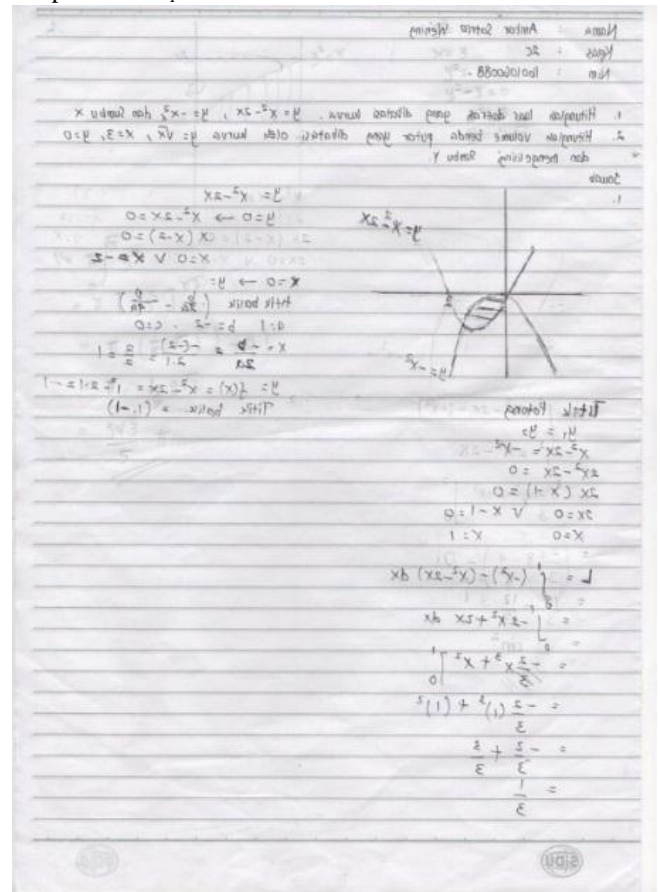 Nama :
Kelas : 2C
Nim : 1001060088
1. Hitunglah luas daerah yang dibatasi kurva. y = x²-2x, y = -x², dan Sumbu x
2. Hitunglah volume benda putar yang dibatasi oleh kurva y = √x, x = 3, y = 0
dan mengelilingi Sumbu Y
Jawab
1.
y = x²-2x
y = -x²
y = x²-2x
y=0 → x²-2x=0
x(x-2)=0
x=0 V x=-2
x=0 → y=
titik balik
a=1 b=-2 c=0
x = -b/2a = -(-2)/2.1 = 2/2 = 1
y = f(x) = x²-2x = 1²-2.1 = -1
Titik balik = (1,-1)
Titik Potong
y₁ = y₂
x²-2x = -x²
2x²-2x = 0
2x(x-1)=0
2x=0 V x-1=0
x=0 x=1
L = ∫ (-x²)-(x²-2x) dx
= ∫ -2x²+2x dx
= -2/3 x³ + x² ]
= -2/3 (1)³ + (1)²
= -2/3 + 3/3
= 1/3
SiDU